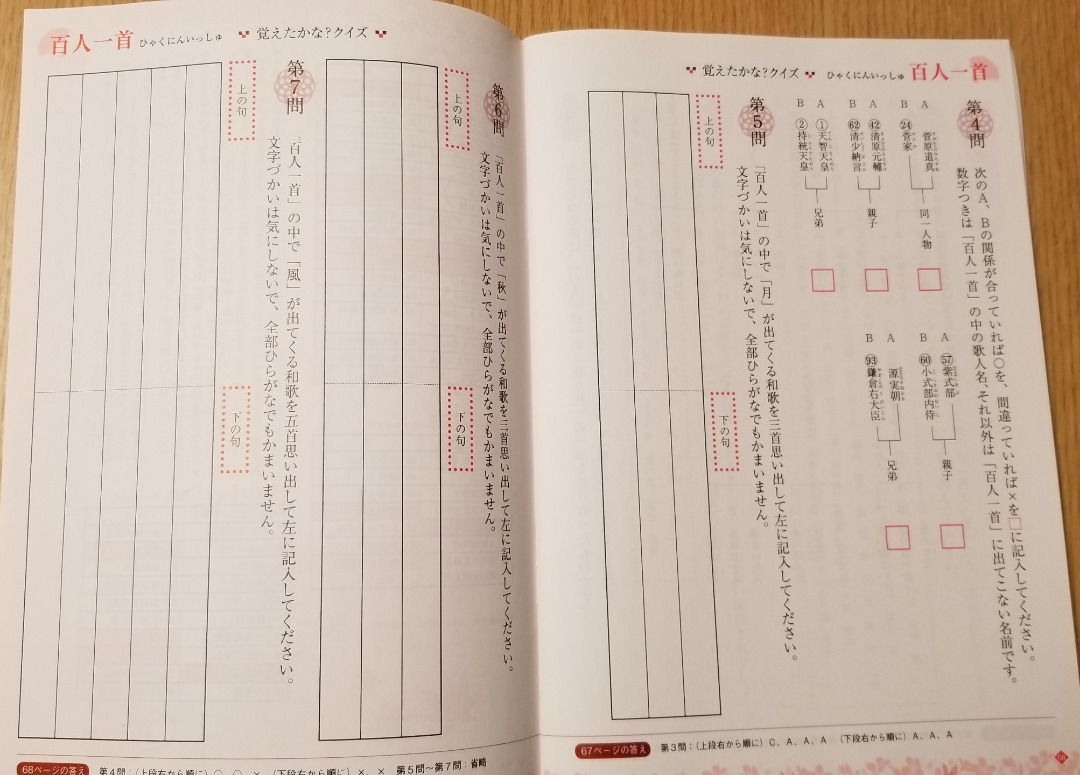 覚えたかな?クイズ ひゃくにんいっしゅ 百人一首
第4問
次のA、Bの関係が合っていれば○を、間違っていれば×を□に記入してください。
数字つきは「百人一首」の中の歌人名、それ以外は「百人一首」に出てこない名前です。
A 菅原道真
B ㉔菅家
同一人物
A ㊷清原元輔
B 62清少納言
親子
A ①天智天皇
B ②持統天皇
兄弟
A 57紫式部
B 60小式部内侍
親子
A 源実朝
B 93鎌倉右大臣
兄弟
第5問
「百人一首」の中で「月」が出てくる和歌を三首思い出して左に記入してください。
文字づかいは気にしないで、全部ひらがなでもかまいません。
上の句
下の句
67ページの答え 第3問:(上段右から順に)C、A、A、A (下段右から順に)A、A、A
百人一首 ひゃくにんいっしゅ 覚えたかな?クイズ
第6問
「百人一首」の中で「秋」が出てくる和歌を三首思い出して左に記入してください。
文字づかいは気にしないで、全部ひらがなでもかまいません。
上の句
下の句
第7問
「百人一首」の中で「風」が出てくる和歌を五首思い出して左に記入してください。
文字づかいは気にしないで、全部ひらがなでもかまいません。
上の句
下の句
68ページの答え 第4問:(上段右から順に)○、○、× (下段右から順に)×、× 第5問〜第7問:省略